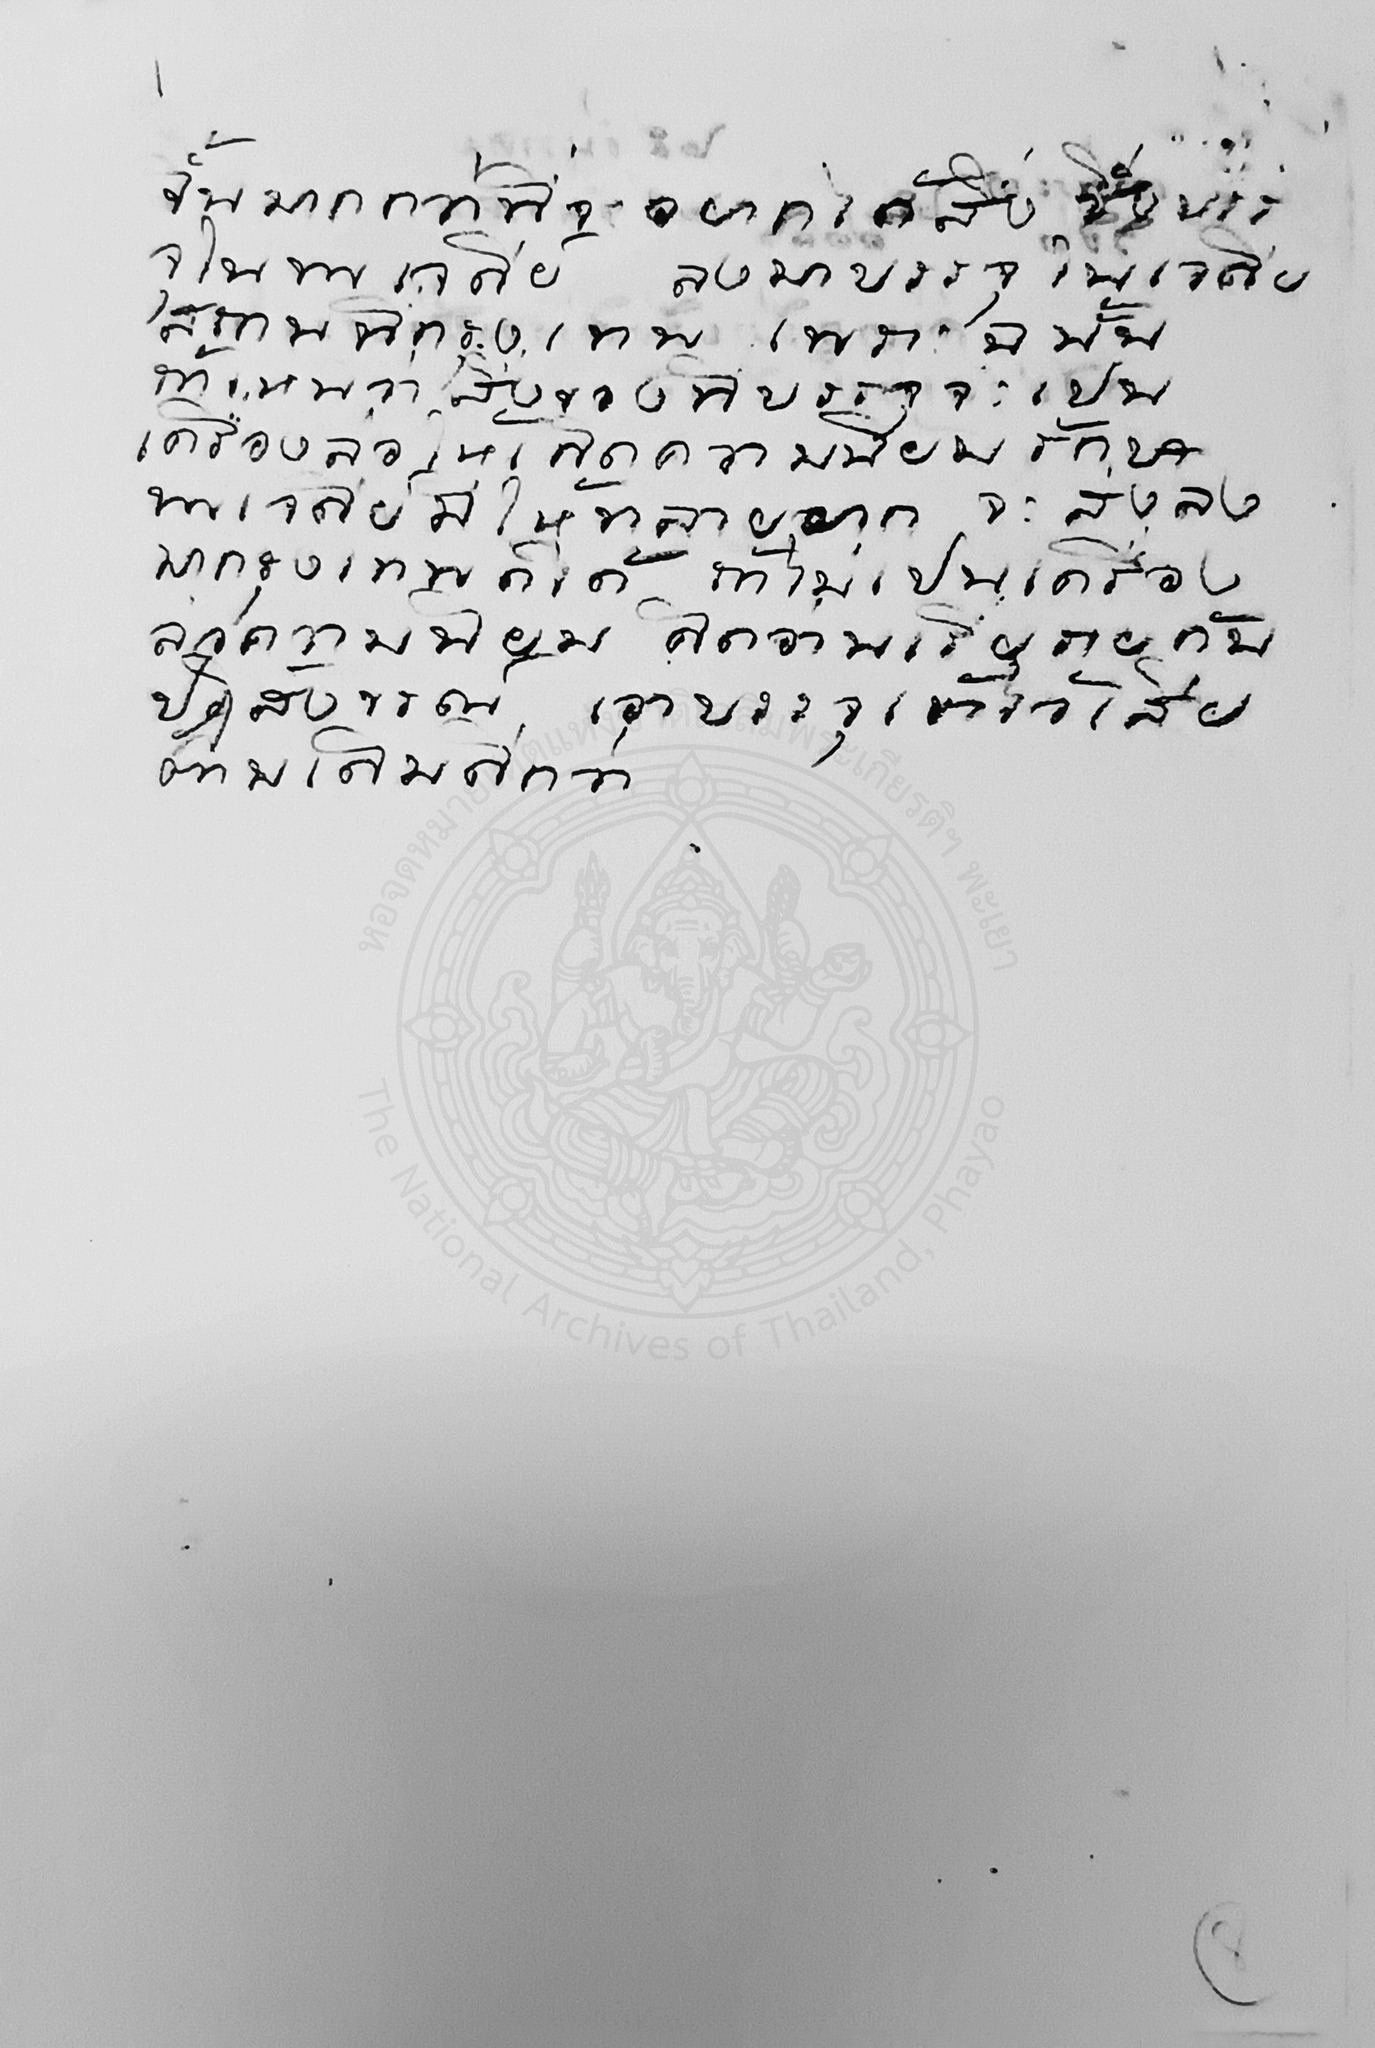 ขึ้นมากกว่าที่จะอยากได้สิ่งซึ่งบรร
จุในพระเจดีย์ ลงมาบรรจุในเจดีย
สถานที่กรุงเทพ เพราะฉนั้น
ถ้าเหนว่าสิ่งของที่บรรจุจะเปน
เครื่องล่อให้เกิดความนิยมรักษา
พระเจดีย์มิให้ทลายยาก จะส่งลง
มากรุงเทพก็ได้ ถ้าไม่เปนเครื่อง
ล่อความนิยม คิดอ่านเรี่ยรายกัน
ปฏิสังขรณ์ เอาบรรจุเข้าไว้เสีย
ตามเดิมดีกว่า
หอจดหมายเหตุแห่งชาติเฉลิมพระเกียรติฯ พะเยา
The National Archives of Thailand, Phayao
8